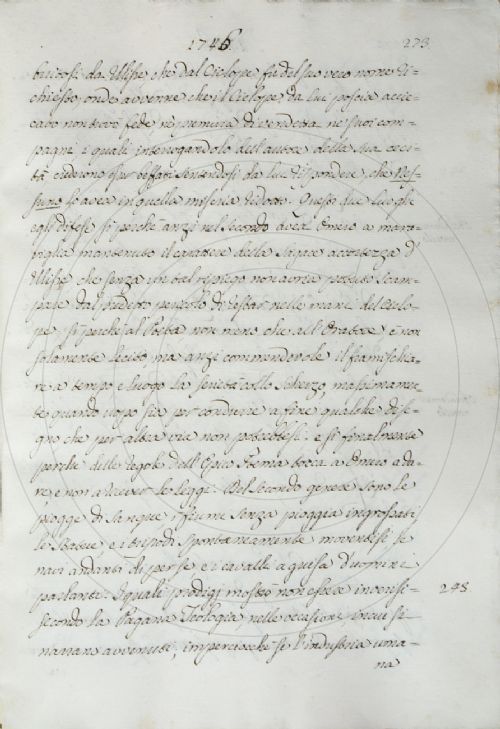 1746. 273
buitosi da Ulisse che dal Ciclope fu del suo vero nome ri=
chiesto; onde avvenne che il Ciclope da lui poscia acce=
cato non trovò fede nè memoria di vendetta ne' suoi com=
pagni i quali interrogandolo dell'autore della sua ceci=
tà credevano esser beffati sentendosi da lui rispondere, che Nes=
suno lo avea in quella miseria ridotto. Questi due luoghi
egli difese sì perchè anzi nel secondo avea Omero a mara=
viglia mantenuto il carattere della sagace accortezza d'
Ulisse che senza un tal ripiego non avria potuto scam=
pare dal pericolo di restar nelle mani del Ciclo=
pe, sì perchè al Poeta non meno che all'Oratore, è non
solamente lecito ma anzi commendevole il frammischia=
re a tempo e luogo la serietà collo scherzo, massimamen=
te quando uopo sia per condurre a fine qualche dise=
gno che per altra via non potrebbesi: e sì finalmente
perchè delle regole dell'Epico Poema tocca a Omero a da=
re, e non a ricever le leggi. Del secondo genere sono le
piogge di sangue i fiumi senza pioggia ingrossati
le Statue e i tripodi spontaneamente moventisi le
navi andanti di per se e i cavalli a guisa d'uomini
parlanti. I quali prodigi mostrò non essere inverisi= 248
secondo la Pagana Teologia nelle occasioni in cui si
narrano avvenuti, imperciocchè se l'industria uma=
na